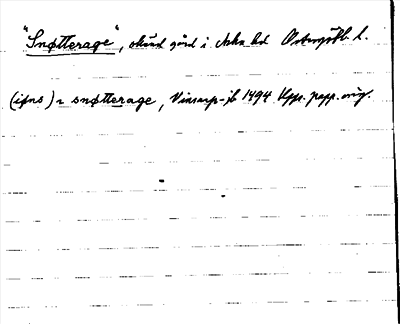 "Snøtterage", okänd gård i Aska hd Östergötl. l.
(iøns) ~ snøtterage, Vinsarp-jb 1494 Upps. papp. orig.